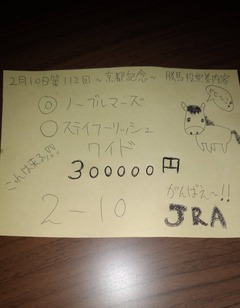 2月10日第112回～京都記念～
◎ノーブルマーズ
○ステイフーリッシュ
ワイド
これは来る!!
300000円
2-10
がんばえ～!!
JRA